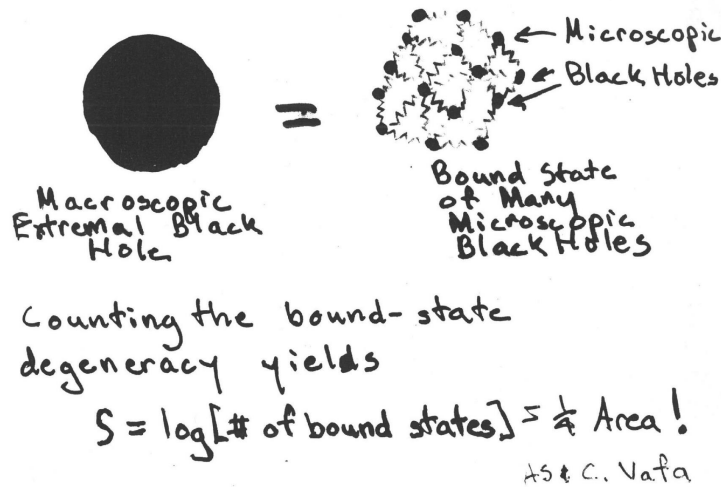 Microscopic
Black Holes
Macroscopic
Extremal Black
Hole
=
Bound State
of Many
Microscopic
Black Holes
Counting the bound-state
degeneracy yields
S = log[# of bound states] = ¼ Area!
AS & C. Vafa